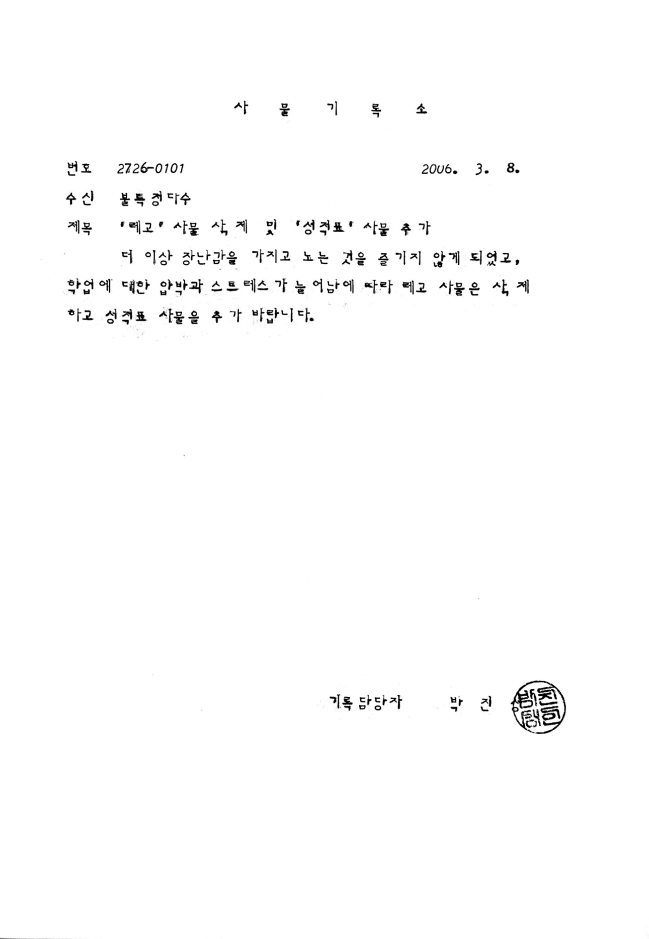 사 물 기 록 소
번호 2726-0101 2006. 3. 8.
수신 불특정다수
제목 「레고」 사물 삭제 및 「성적표」 사물 추가
더 이상 장난감을 가지고 노는 것을 즐기지 않게 되었고,
학업에 대한 압박과 스트레스가 늘어남에 따라 레고 사물은 삭제
하고 성적표 사물을 추가 바랍니다.
기록담당자 박 진